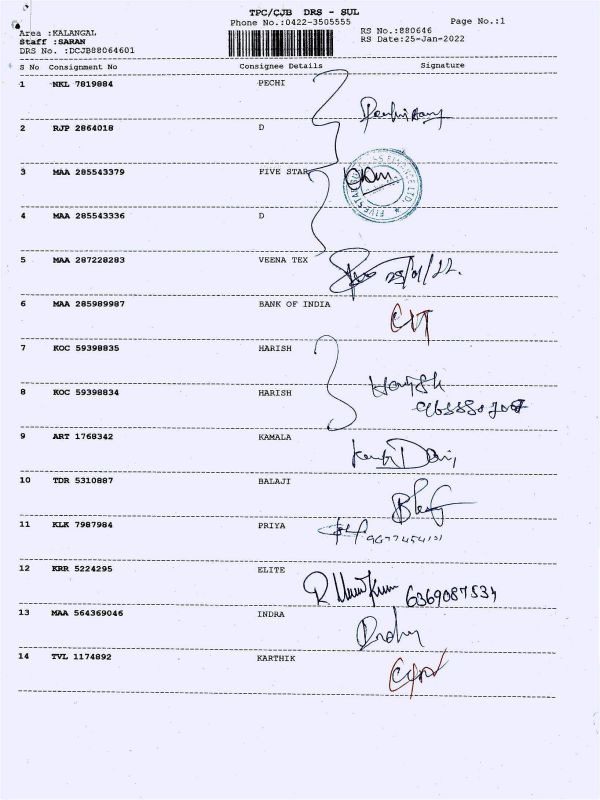 TPC/CJB DRS - SUL
Phone No.:0422-3505555 Page No.:1
Area :KALANGAL RS No.:880646
Staff :SARAN RS Date:25-Jan-2022
DRS No. :DCJB88064601
S No Consignment No Consignee Details Signature
1 NKL 7819884 PECHI
2 RJP 2864018 D
3 MAA 285543379 FIVE STAR
4 MAA 285543336 D
5 MAA 287228283 VEENA TEX
6 MAA 285989987 BANK OF INDIA
7 KOC 59398835 HARISH
8 KOC 59398834 HARISH
9 ART 1768342 KAMALA
10 TDR 5310887 BALAJI
11 KLK 7987984 PRIYA
9677454101
12 KRR 5224295 ELITE
6369087534
13 MAA 564369046 INDRA
14 TVL 1174892 KARTHIK